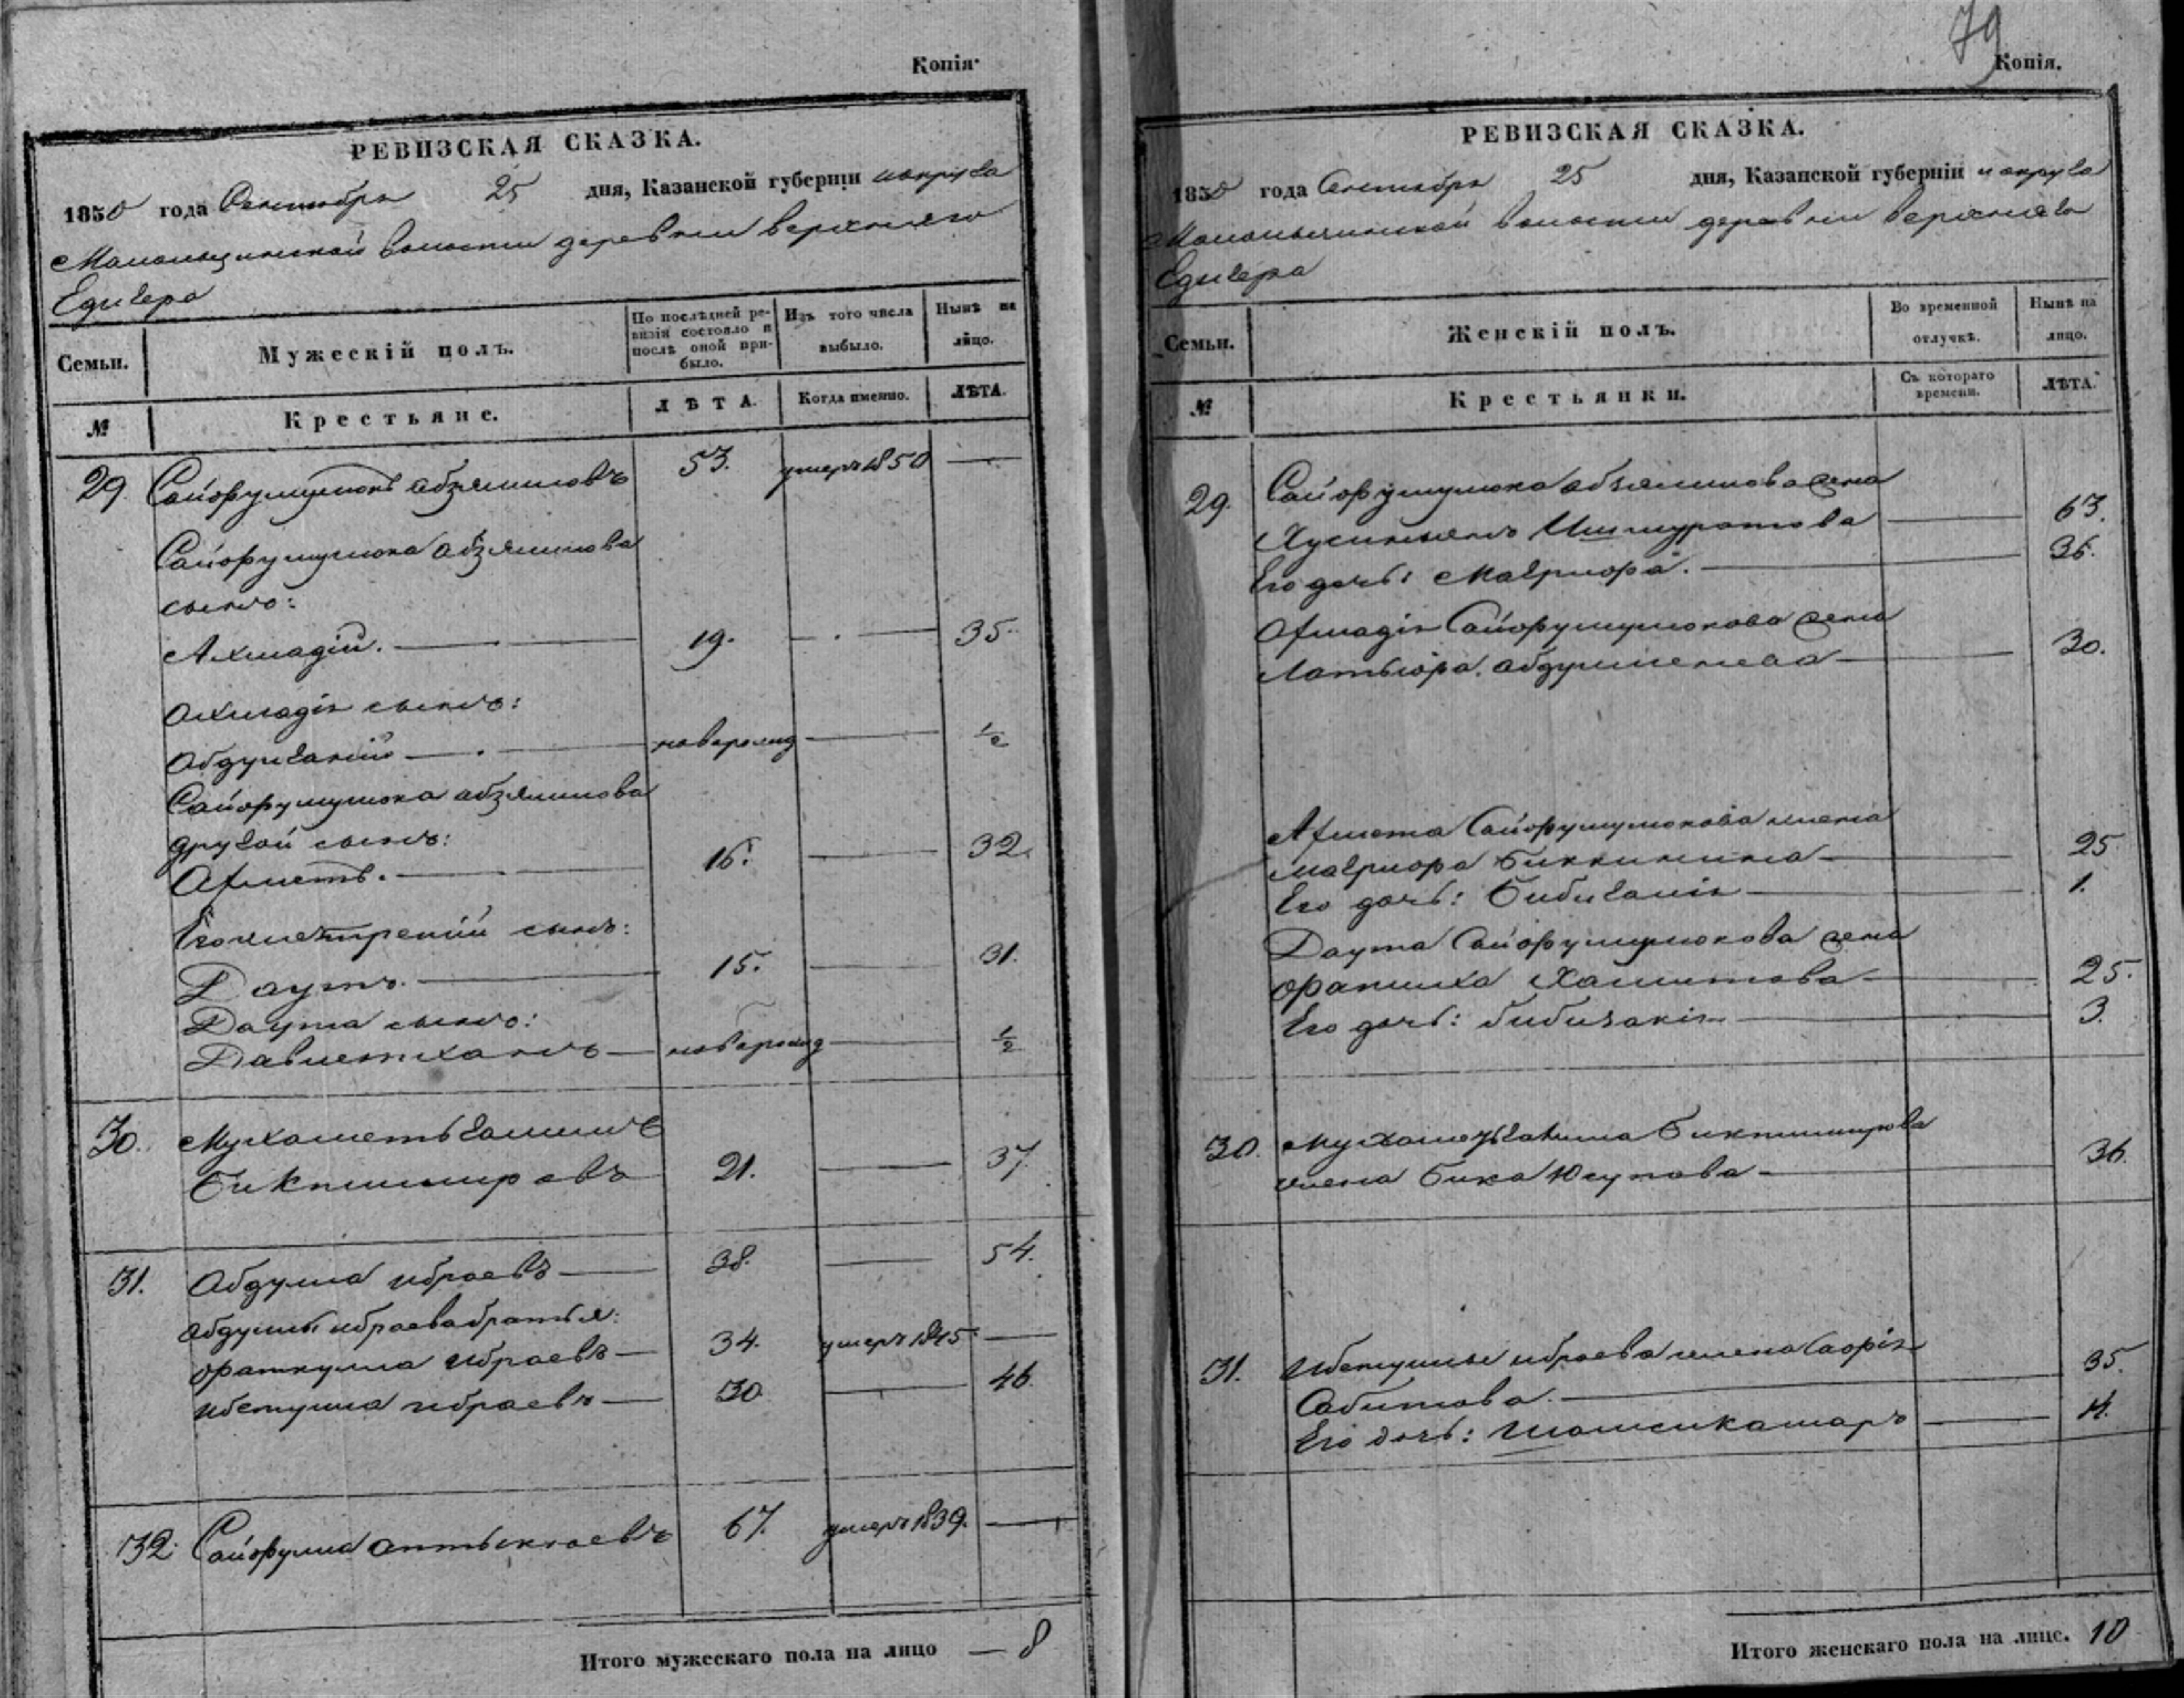 Копія.
РЕВИЗСКАЯ СКАЗКА.
1850 года Сентября 25 дня, Казанской губерніи и округа
волости деревни Верхняго
Едигера
Семьи. Мужескій полъ. По послѣдней ревизіи состояло и послѣ оной прибыло. Изъ того числа выбыло. Нынѣ на лицо.
№ Крестьяне. ЛѢТА. Когда именно. ЛѢТА.
29 Сайфулмулюкъ Абзялиловъ 53. умеръ 1850 —
Сайфулмулюка Абзялилова
сынъ:
Ахмадій. — 19. — 35.
Ахмадія сынъ:
Абдулганій — новорожд — ½
Сайфулмулюка Абзялилова
другой сынъ:
Ахметъ. — 16. — 32.
Его третій сынъ:
Даутъ. — 15. — 31.
Даута сынъ:
Давлетханъ — новорожд — ½
30. Мухаметьгалимъ
Биктимировъ 21. — 37.
31. Абдулла Ибраевъ — 38. — 54.
Абдуллы Ибраева братья:
Фаткулла Ибраевъ — 34. умеръ 1845 —
Ибетулла Ибраевъ — 30. — 46.
32. Сайфулла 67. умеръ 1839. —
Итого мужескаго пола на лицо — 8
79
Копія.
РЕВИЗСКАЯ СКАЗКА.
1850 года Сентября 25 дня, Казанской губерніи и округа
волости деревни Верхняго
Едигера
Семьи. Женскій полъ. Во временной отлучкѣ. Нынѣ на лицо.
№ Крестьянки. Съ котораго времени. ЛѢТА.
29. Сайфулмулюка Абзялилова жена
Ишмуратова — 63.
Его дочь: Магрифа. — 36.
Ахмадія Сайфулмулюкова жена
Латыфа — 30.
Ахмета Сайфулмулюкова жена
Магрифа Биккинина — 25
Его дочь: Бибигалія — 1.
Даута Сайфулмулюкова жена
Хамитова — 25.
Его дочь: — 3.
30. Мухаметьгалима Биктимирова
жена Бика Юсупова — 36.
31. Ибетуллы Ибраева жена Сафія
Сабитова. — 35.
Его дочь: Шамсикамаръ —
Итого женскаго пола на лице. 10